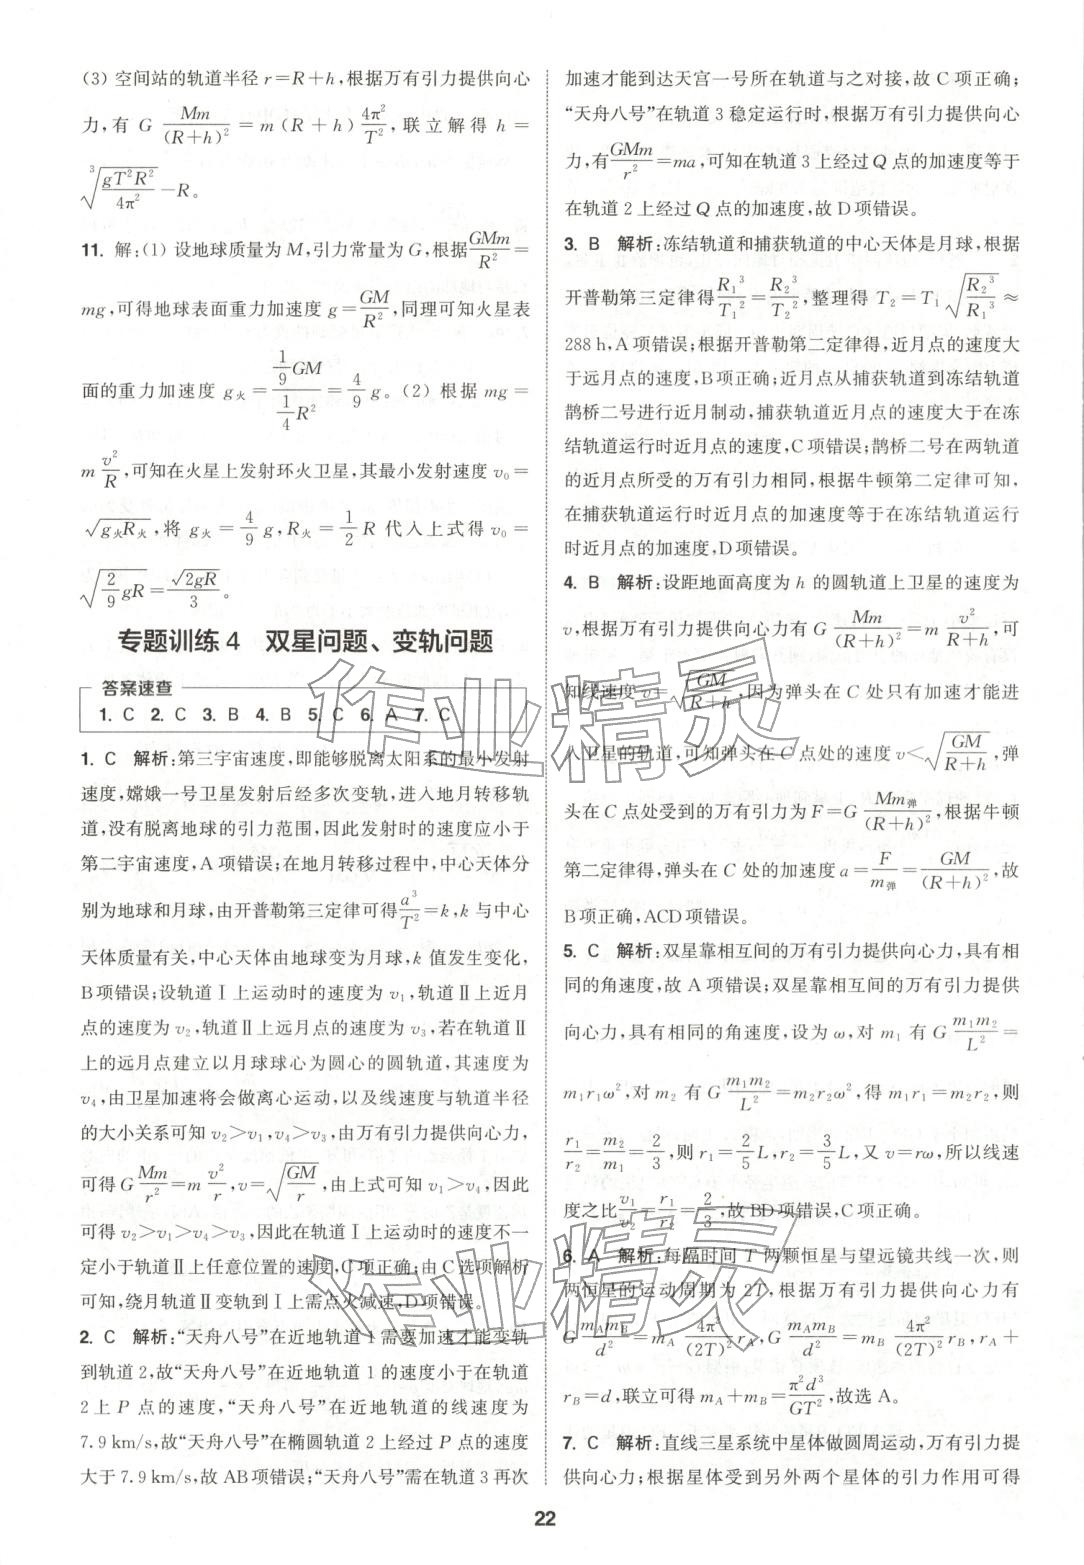 (3) 空间站的轨道半径 r=R+h,根据万有引力提供向心
力,有 G\frac{Mm}{(R+h)^2}=m(R+h)\frac{4π^2}{T^2},联立解得 h=
\sqrt[3]{\frac{gT^2R^2}{4π^2}}-R。
11. 解:(1) 设地球质量为 M,引力常量为 G,根据\frac{GMm}{R^2}=
mg,可得地球表面重力加速度 g=\frac{GM}{R^2},同理可知火星表
面的重力加速度 g火=\frac{\frac{1}{9}GM}{\frac{1}{4}R^2}=\frac{4}{9}g。(2) 根据 mg=
m\frac{v^2}{R},可知在火星上发射环火卫星,其最小发射速度 v_0=
\sqrt{g火R火},将 g火=\frac{4}{9}g,R火=\frac{1}{2}R 代入上式得 v_0=
\sqrt{\frac{2}{9}gR}=\frac{\sqrt{2gR}}{3}。
专题训练 4 双星问题、变轨问题
答案速查
1. C 2. C 3. B 4. B 5. C 6. A 7. C
1. C 解析:第三宇宙速度,即能够脱离太阳系的最小发射
速度,嫦娥一号卫星发射后经多次变轨,进入地月转移轨
道,没有脱离地球的引力范围,因此发射时的速度应小于
第二宇宙速度,A 项错误;在地月转移过程中,中心天体分
别为地球和月球,由开普勒第三定律可得\frac{a^3}{T^2}=k,k 与中心
天体质量有关,中心天体由地球变为月球,k 值发生变化,
B项错误;设轨道Ⅰ上运动时的速度为 v_1,轨道Ⅱ上近月
点的速度为 v_2,轨道Ⅱ上远月点的速度为 v_3,若在轨道Ⅱ
上的远月点建立以月球球心为圆心的圆轨道,其速度为
v_4,由卫星加速将会做离心运动,以及线速度与轨道半径
的大小关系可知 v_2>v_1,v_4>v_3,由万有引力提供向心力,
可得 G\frac{Mm}{r^2}=m\frac{v^2}{r},v=\sqrt{\frac{GM}{r}},由上式可知 v_1>v_4,因此
可得 v_2>v_1>v_4>v_3,因此在轨道Ⅰ上运动时的速度不一
定小于轨道Ⅱ上任意位置的速度,C项正确;由 C 选项解析
可知,绕月轨道Ⅱ变轨到Ⅰ上需点火减速,D项错误。
2. C 解析:“天舟八号”在近地轨道 1 需要加速才能变轨
到轨道 2,故“天舟八号”在近地轨道 1 的速度小于在轨道
2 上 P 点的速度,“天舟八号”在近地轨道的线速度为
7.9 km/s,故“天舟八号”在椭圆轨道 2 上经过 P 点的速度
大于 7.9 km/s,故 AB项错误;“天舟八号”需在轨道 3 再次
加速才能到达天宫一号所在轨道与之对接,故 C 项正确;
“天舟八号”在轨道 3 稳定运行时,根据万有引力提供向心
力,有\frac{GMm}{r^2}=ma,可知在轨道 3 上经过 Q 点的加速度等于
在轨道 2 上经过 Q 点的加速度,故 D项错误。
3. B 解析:冻结轨道和捕获轨道的中心天体是月球,根据
开普勒第三定律得\frac{R_1^3}{T_1^2}=\frac{R_2^3}{T_2^2},整理得 T_2=T_1\sqrt{\frac{R_2^3}{R_1^3}}≈
288 h,A 项错误;根据开普勒第二定律得,近月点的速度大
于远月点的速度,B项正确;近月点从捕获轨道到冻结轨道
鹊桥二号进行近月制动,捕获轨道近月点的速度大于在冻
结轨道运行时近月点的速度,C 项错误;鹊桥二号在两轨道
的近月点所受的万有引力相同,根据牛顿第二定律可知,
在捕获轨道运行时近月点的加速度等于在冻结轨道运行
时近月点的加速度,D项错误。
4. B 解析:设距地面高度为 h 的圆轨道上卫星的速度为
v,根据万有引力提供向心力有 G\frac{Mm}{(R+h)^2}=m\frac{v^2}{R+h},可
知线速度 v=\sqrt{\frac{GM}{R+h}},因为弹头在 C 处只有加速才能进
入卫星的轨道,可知弹头在 C 点处的速度 v<\sqrt{\frac{GM}{R+h}},弹
头在 C 点处受到的万有引力为 F=G\frac{Mm弹}{(R+h)^2},根据牛顿
第二定律得,弹头在 C 处的加速度 a=\frac{F}{m弹}=\frac{GM}{(R+h)^2},故
B项正确,ACD项错误。
5. C 解析:双星靠相互间的万有引力提供向心力,具有相
同的角速度,故 A 项错误;双星靠相互间的万有引力提供
向心力,具有相同的角速度,设为 ω,对 m_1 有 G\frac{m_1m_2}{L^2}=
m_1r_1ω^2,对 m_2 有 G\frac{m_1m_2}{L^2}=m_2r_2ω^2,得 m_1r_1=m_2r_2,则
\frac{r_1}{r_2}=\frac{m_2}{m_1}=\frac{2}{3},则 r_1=\frac{2}{5}L,r_2=\frac{3}{5}L,又 v=rω,所以线速
度之比\frac{v_1}{v_2}=\frac{r_1}{r_2}=\frac{2}{3},故 BD项错误,C项正确。
6. A 解析:每隔时间 T 两颗恒星与望远镜共线一次,则
两恒星的运动周期为 2T,根据万有引力提供向心力有
G\frac{m_Am_B}{d^2}=m_A\frac{4π^2}{(2T)^2}r_A,G\frac{m_Am_B}{d^2}=m_B\frac{4π^2}{(2T)^2}r_B,r_A+
r_B=d,联立可得 m_A+m_B=\frac{π^2d^3}{GT^2},故选 A。
7. C 解析:直线三星系统中星体做圆周运动,万有引力提
供向心力;根据星体受到另外两个星体的引力作用可得
22
作业精灵
作业精灵